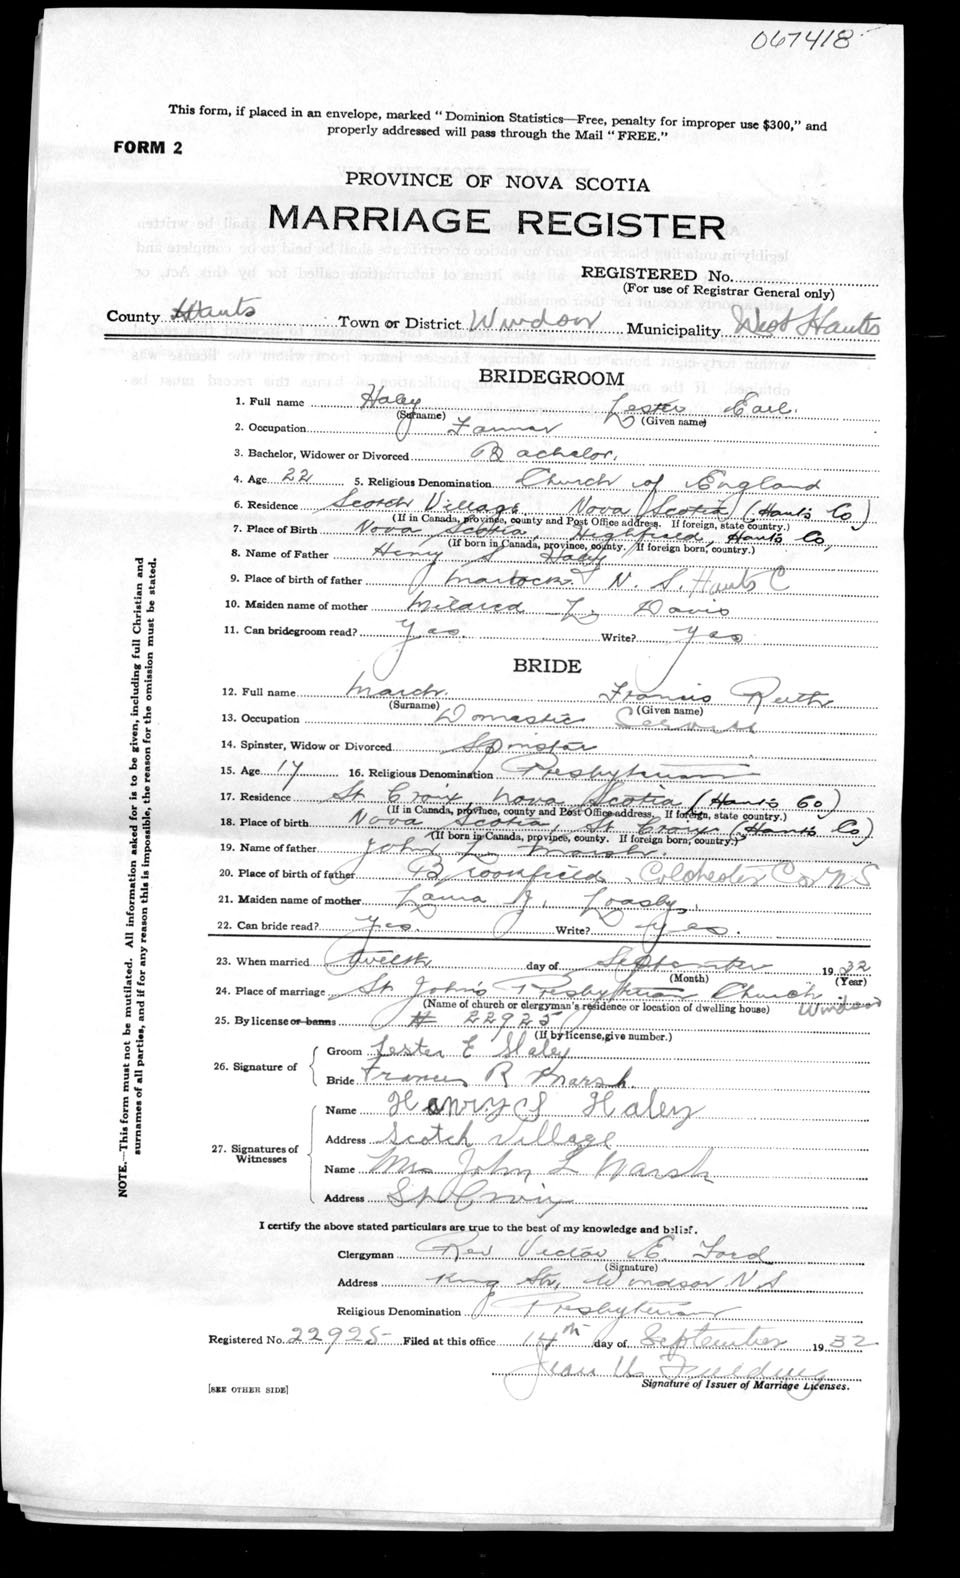 067418
This form, if placed in an envelope, marked "Dominion Statistics—Free, penalty for improper use $300," and
properly addressed will pass through the Mail "FREE."
FORM 2
PROVINCE OF NOVA SCOTIA
MARRIAGE REGISTER
REGISTERED No.
(For use of Registrar General only)
County Hants Town or District Windsor Municipality West Hants
BRIDEGROOM
1. Full name Haley Lester Earl.
(Surname) (Given name)
2. Occupation Farmer
3. Bachelor, Widower or Divorced Bachelor.
4. Age 22 5. Religious Denomination Church of England
6. Residence Scotch Village Nova Scotia (Hants Co)
(If in Canada, province, county and Post Office address. If foreign, state country.)
7. Place of Birth Nova Scotia, Highfield, Hants Co,
(If born in Canada, province, county. If foreign born, country.)
8. Name of Father Henry S Haley
9. Place of birth of father Martock N. S. Hants C
10. Maiden name of mother Mildred L. Davis
11. Can bridegroom read? Yes. Write? Yes
BRIDE
12. Full name Marsh. Francis Ruth
(Surname) (Given name)
13. Occupation Domestic Servant
14. Spinster, Widow or Divorced Spinster
15. Age 17 16. Religious Denomination Presbyterian
17. Residence St Croix Nova Scotia (Hants Co)
(If in Canada, province, county and Post Office address. If foreign, state country.)
18. Place of birth Nova Scotia, St Croix (Hants Co)
(If born in Canada, province, county. If foreign born, country.)
19. Name of father John L. Marsh.
20. Place of birth of father Broomfield, Colchester Co NS
21. Maiden name of mother Laura J. Loasby,
22. Can bride read? Yes. Write? Yes.
23. When married twelth day of September 1932
(Month) (Year)
24. Place of marriage St John's Presbyterian Church Windsor
(Name of church or clergyman's residence or location of dwelling house)
25. By license or banns # 22925
(If by license, give number.)
26. Signature of
Groom Lester E Haley
Bride Frances R Marsh.
27. Signatures of Witnesses
Name Henry S Haley
Address Scotch Village
Name Mrs John L Marsh
Address St Croix
I certify the above stated particulars are true to the best of my knowledge and belief.
Clergyman Rev Victor E. Ford
(Signature)
Address King St, Windsor N.S
Religious Denomination Presbyterian
Registered No. 22925 Filed at this office 14th day of September 1932
Jean
Signature of Issuer of Marriage Licenses.
[SEE OTHER SIDE]
NOTE.—This form must not be mutilated. All information asked for is to be given, including full Christian and
surnames of all parties, and if for any reason this is impossible, the reason for the omission must be stated.